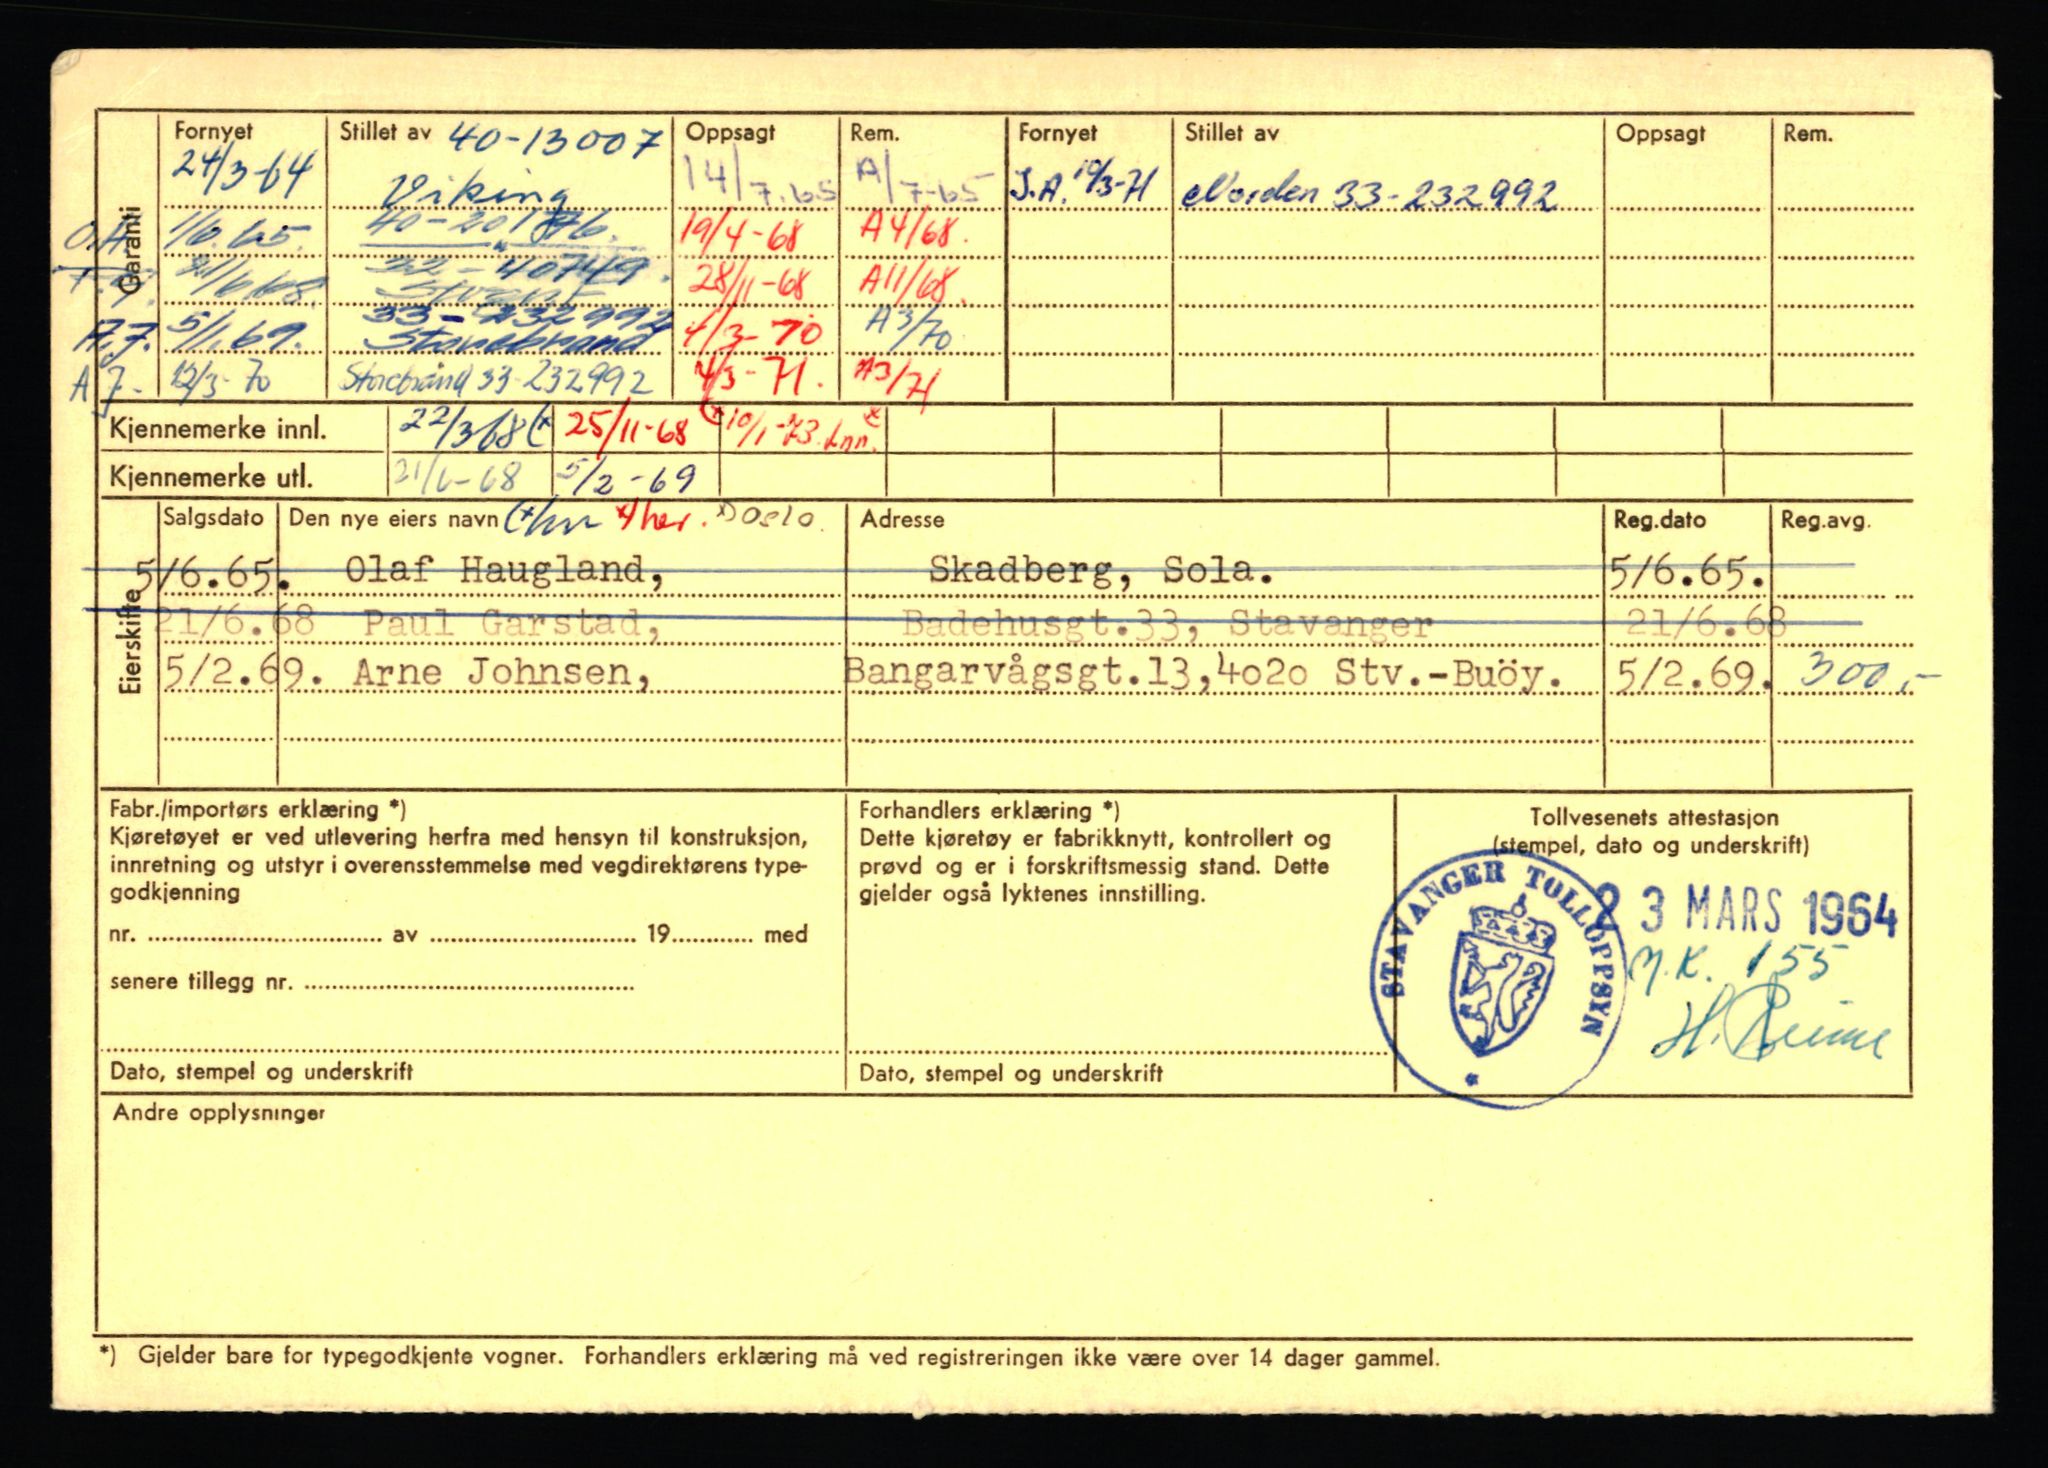 Garanti
Fornyet Stillet av 40-13007 Oppsagt Rem. Fornyet Stillet av Oppsagt Rem.
24/3-64 Viking 14/7.65 A/7-65 J.A. 10/3-71 Norden 33-232992
O.H. 1/6.65. 40-201876. 19/4-68 A4/68.
21/6.68. 22-40749. 28/11-68 A11/68.
A.J. 5/1.69. 33-232992 Storebrand 4/3-70 A3/70
A.J. 12/3-70 Storebrand 33-232992 4/3-71. A3/71
Kjennemerke innl. 22/3 68 (x 25/11-68 (x 10/1-73. Inn. x
Kjennemerke utl. 21/6-68 5/2-69
Eierskifte
Salgsdato Den nye eiers navn x) her. x) Oslo. Adresse Reg.dato Reg.avg.
5/6.65. Olaf Haugland, Skadberg, Sola. 5/6.65.
21/6.68 Paul Garstad, Badehusgt.33, Stavanger 21/6.68
5/2.69. Arne Johnsen, Bangarvågsgt.13,4020 Stv.-Buöy. 5/2.69. 300,-
Fabr./importørs erklæring *)
Kjøretøyet er ved utlevering herfra med hensyn til konstruksjon,
innretning og utstyr i overensstemmelse med vegdirektørens type-
godkjenning
nr. ........ av ........ 19........ med
senere tillegg nr. ........
Dato, stempel og underskrift
Forhandlers erklæring *)
Dette kjøretøy er fabrikknytt, kontrollert og
prøvd og er i forskriftsmessig stand. Dette
gjelder også lyktenes innstilling.
Dato, stempel og underskrift
Tollvesenets attestasjon
(stempel, dato og underskrift)
STAVANGER TOLLOPPSYN
23 MARS 1964
N.K. 155
H. Reime
Andre opplysninger
*) Gjelder bare for typegodkjente vogner. Forhandlers erklæring må ved registreringen ikke være over 14 dager gammel.